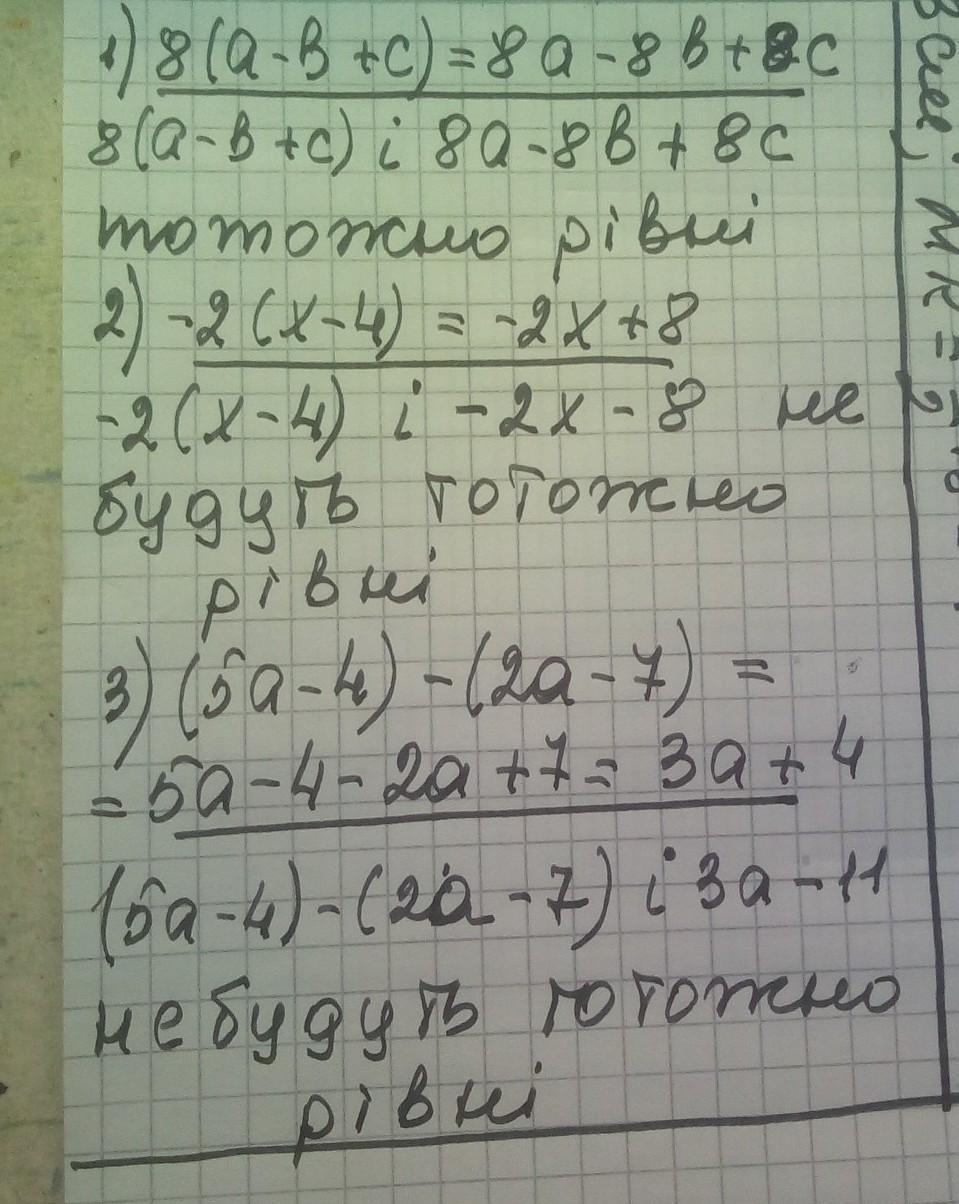 1) 8(a-b+c)=8a-8b+8c
8(a-b+c) і 8a-8b+8c
тотожно рівні
2) -2(x-4) = -2x+8
-2(x-4) і -2x-8 не
будуть тотожно
рівні
3) (5a-4)-(2a-7) =
=5a-4-2a+7= 3a+4
(5a-4)-(2a-7) і 3a-11
не будуть тотожно
рівні